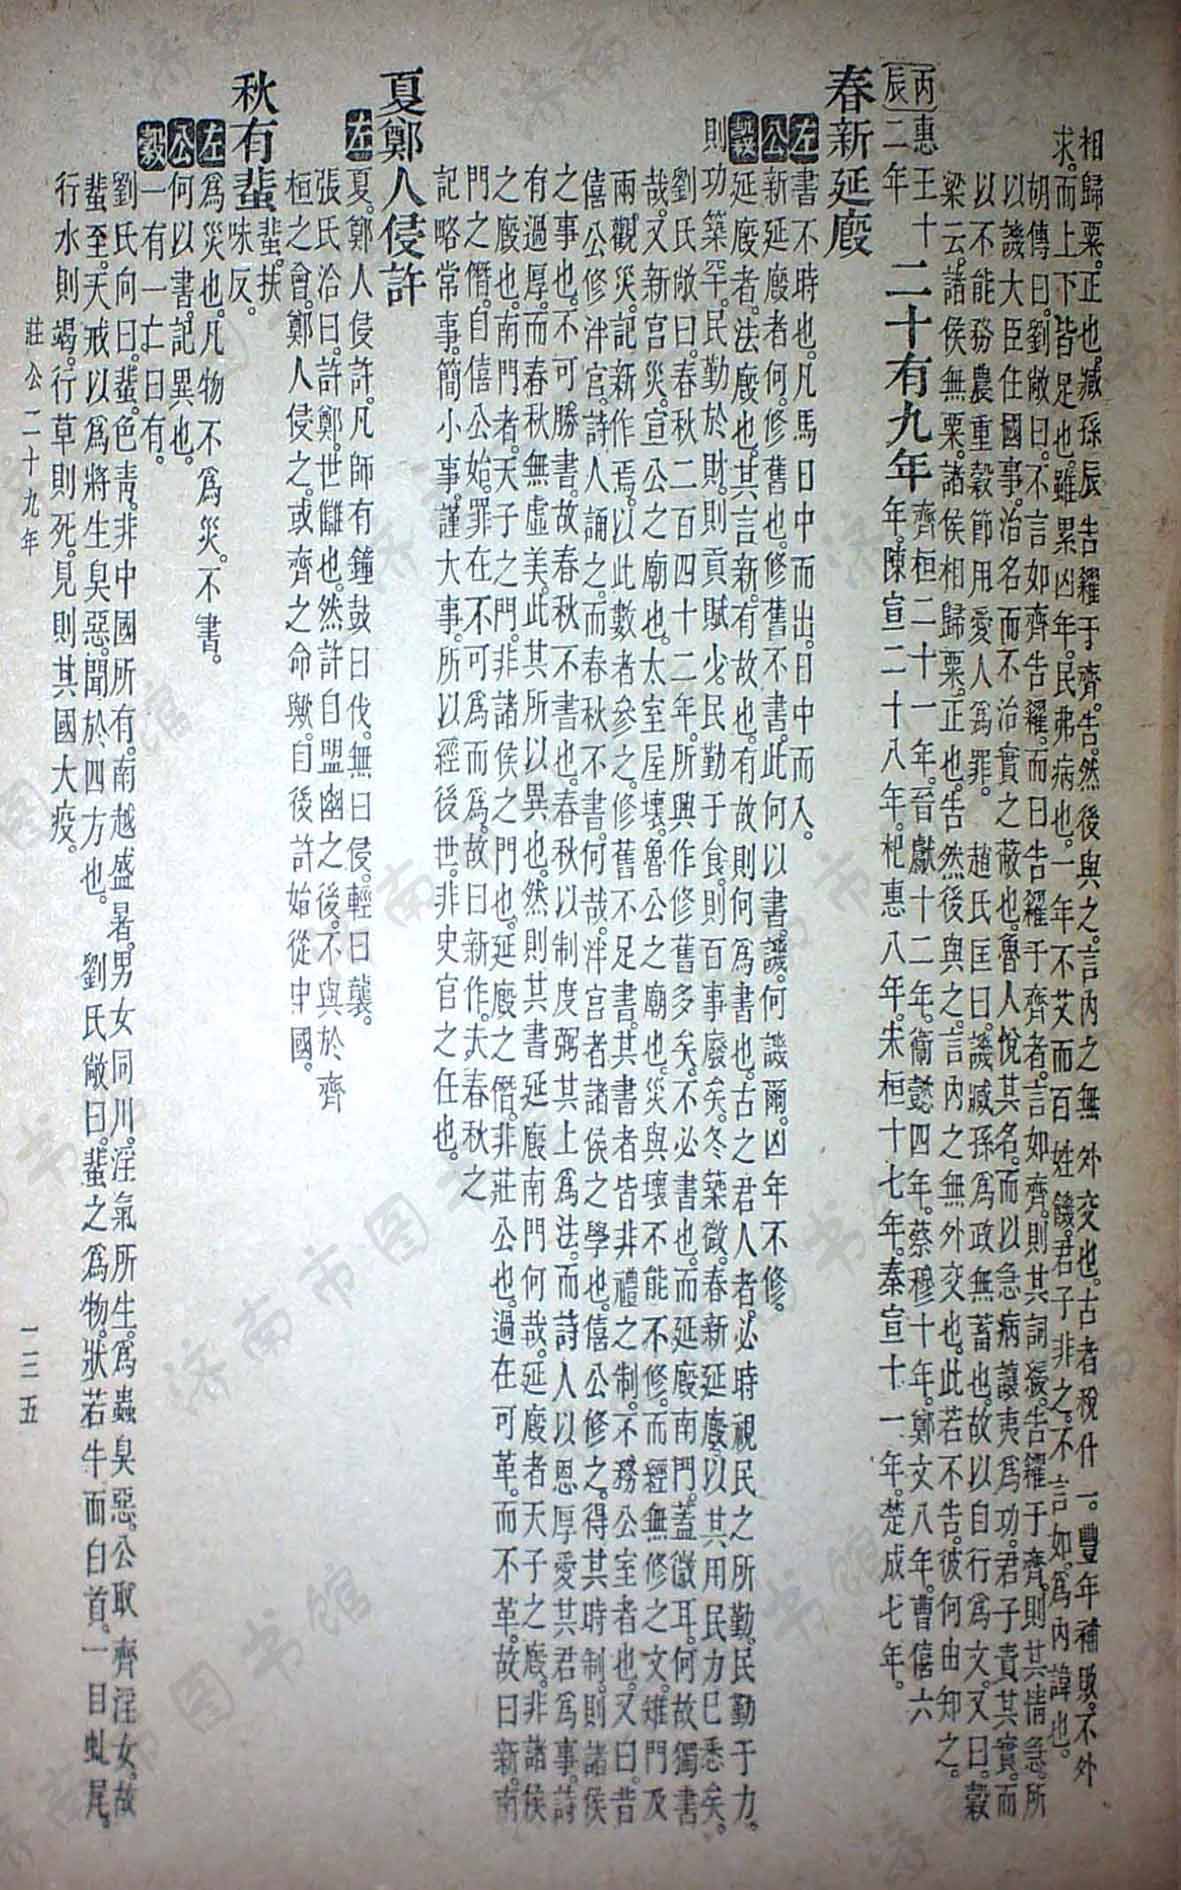 相歸粟。正也。臧孫辰告糴于齊。告。然後與之。言內之無外交也。古者稅什一。豐年補敗。不外
求。而上下皆足也。雖累凶年。民弗病也。一年不艾而百姓饑。君子非之。不言如。爲內諱也。
胡傳曰。劉敞曰。不言如齊告糴。而曰告糴于齊者。言如齊。則其詞緩。告糴于齊。則其情急。所
以譏大臣任國事。治名而不治實之蔽也。魯人悅其名。而以急病讓夷爲功。君子責其實。而
以不能務農重穀節用愛人爲罪。 趙氏匡曰。譏臧孫爲政無蓄也。故以自行爲文。又曰。穀
梁云。諸侯無粟。諸侯相歸粟。正也。告然後與之。言內之無外交也。此若不告。彼何由知之。
丙辰
惠王十二年
二十有九年
齊桓二十一年。晉獻十二年。衞懿四年。蔡穆十年。鄭文八年。曹僖六
年。陳宣二十八年。杞惠八年。宋桓十七年。秦宣十一年。楚成七年。
春新延廄
左書不時也。凡馬日中而出。日中而入。
公新延廄者何。修舊也。修舊不書。此何以書。譏。何譏爾。凶年不修。
穀延廄者。法廄也。其言新。有故也。有故則何爲書也。古之君人者。必時視民之所勤。民勤于力。
則功築罕。民勤於財。則貢賦少。民勤于食。則百事廢矣。冬築微。春新延廄。以其用民力已悉矣。
劉氏敞曰。春秋二百四十二年。所興作修舊多矣。不必書也。而延廄南門。蓋微耳。何故獨書
哉。又新宮災。宣公之廟也。太室屋壞。魯公之廟也。災與壞不能不修。而經無修之文。雉門及
兩觀災。記新作焉。以此數者參之。修舊不足書。其書者皆非禮之制。不務公室者也。又曰。昔
僖公修泮宮。詩人誦之。而春秋不書。何哉。泮宮者諸侯之學也。僖公修之。得其時制。則諸侯
之事也。不可勝書。故春秋不書也。春秋以制度弼其上爲法。而詩人以恩厚愛其君爲事。詩
有過厚。而春秋無虛美。此其所以異也。然則其書延廄南門何哉。延廄者天子之廄。非諸侯
之廄也。南門者。天子之門。非諸侯之門也。延廄之僭。非莊公也。過在可革。而不革。故曰新。南
門之僭。自僖公始。罪在不可爲而爲。故曰新作。夫春秋之
記略常事。簡小事。謹大事。所以經後世。非史官之任也。
夏鄭人侵許
左夏。鄭人侵許。凡師有鐘鼓曰伐。無曰侵。輕曰襲。
張氏洽曰。許鄭。世讎也。然許自盟幽之後。不與於齊
桓之會。鄭人侵之。或齊之命歟。自後許始從中國。
秋有蜚
蜚。扶
味反。
左爲災也。凡物不爲災。不書。
公何以書。記異也。
穀一有一亡曰有。
劉氏向曰。蜚。色靑。非中國所有。南越盛暑。男女同川。淫氣所生。爲蟲臭惡。公取齊淫女。故
蜚至。天戒以爲將生臭惡。聞於四方也。 劉氏敞曰。蜚之爲物。狀若牛而白首。一目虬尾。
行水則竭。行草則死。見則其國大疫。
莊公二十九年
一二五